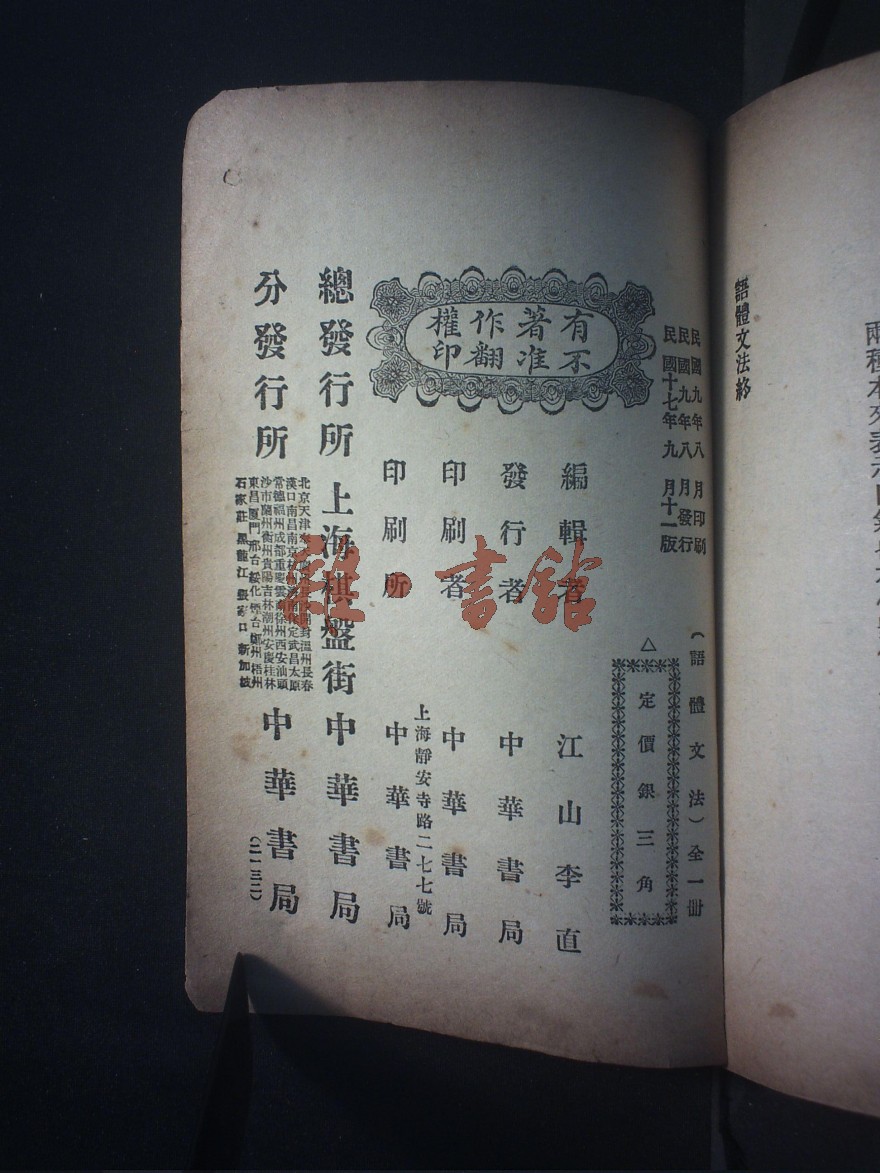 語體文法終
民國九年八月印刷
民國九年八月發行
民國十七年九月十一版
(語體文法)全一冊
△
定價銀三角
有著作權
不准翻印
編輯者 江山李直
發行者 中華書局
印刷者 中華書局
上海靜安寺路二七七號
印刷所 中華書局
總發行所 上海棋盤街 中華書局
分發行所
北京天津
漢口南昌南京杭州
常德福州成都重慶雲南徐州西安汕頭
沙市蘭州衡州貴陽吉林潮州安慶桂林
東昌廈門邢台綏化煙台鄭州梧州
石家莊 黑龍江 張家口 新加坡
中華書局
(二一三二)
雜·書館